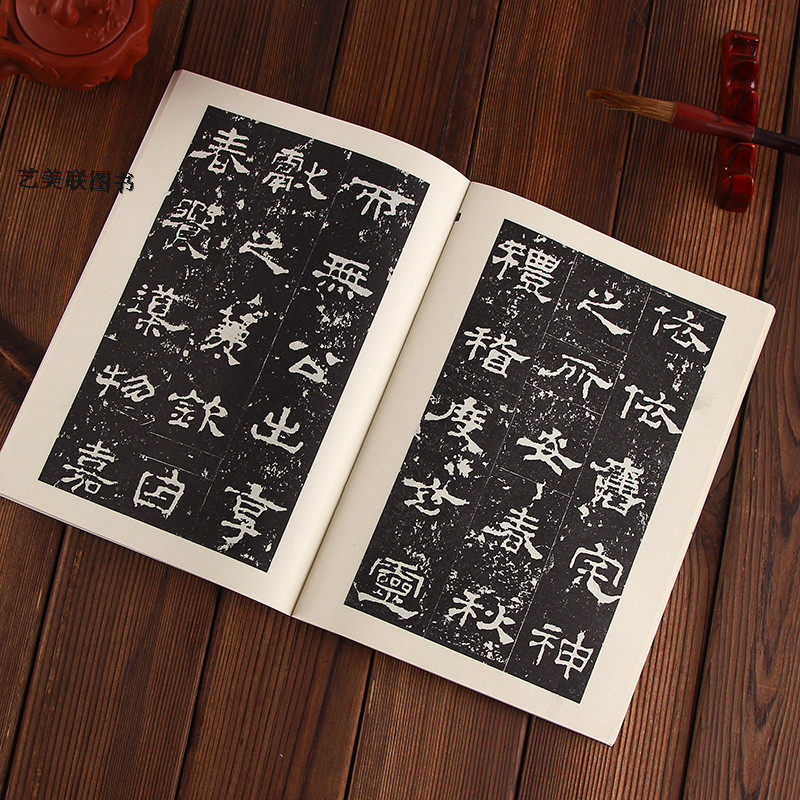 艺美联图书
依依舊宅神
之所安春秋
禮稽度玄靈
而無公出享
獻之薦欽因
春饗導物嘉